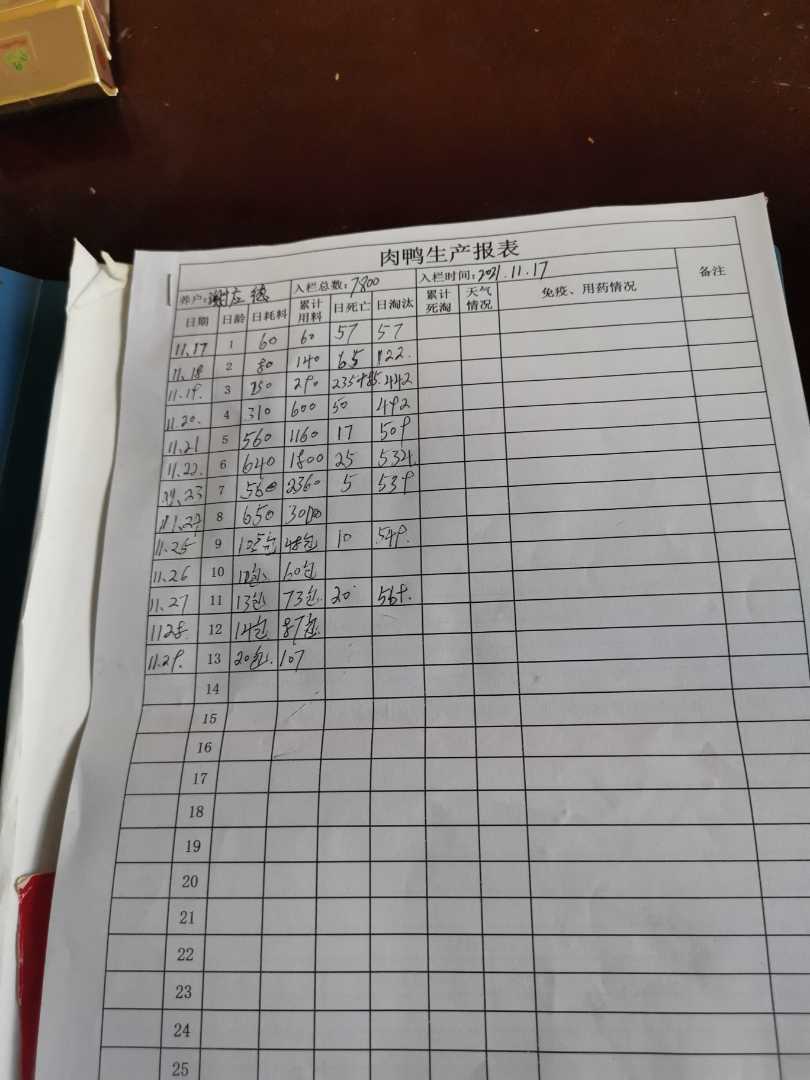 肉鸭生产报表
养户:谢应德 入栏总数:7800 入栏时间:2021.11.17 备注
日期 日龄 日耗料 累计用料 日死亡 日淘汰 累计死淘 天气情况 免疫、用药情况
11.17 1 60 60 57 57
11.18 2 80 140 65 122.
11.19. 3 150 290 235+85. 442
11.20. 4 310 600 50 492
11.21 5 560 1160 17 509
11.22. 6 640 1800 25 534.
11.23 7 560 2360 5 539
8 650 3010
11.25 9 48包 10 549.
11.26 10 12包 60包
11.27 11 13包 73包. 20 569.
1128. 12 14包 87包.
11.29. 13 20包. 107
14
15
16
17
18
19
20
21
22
23
24
25